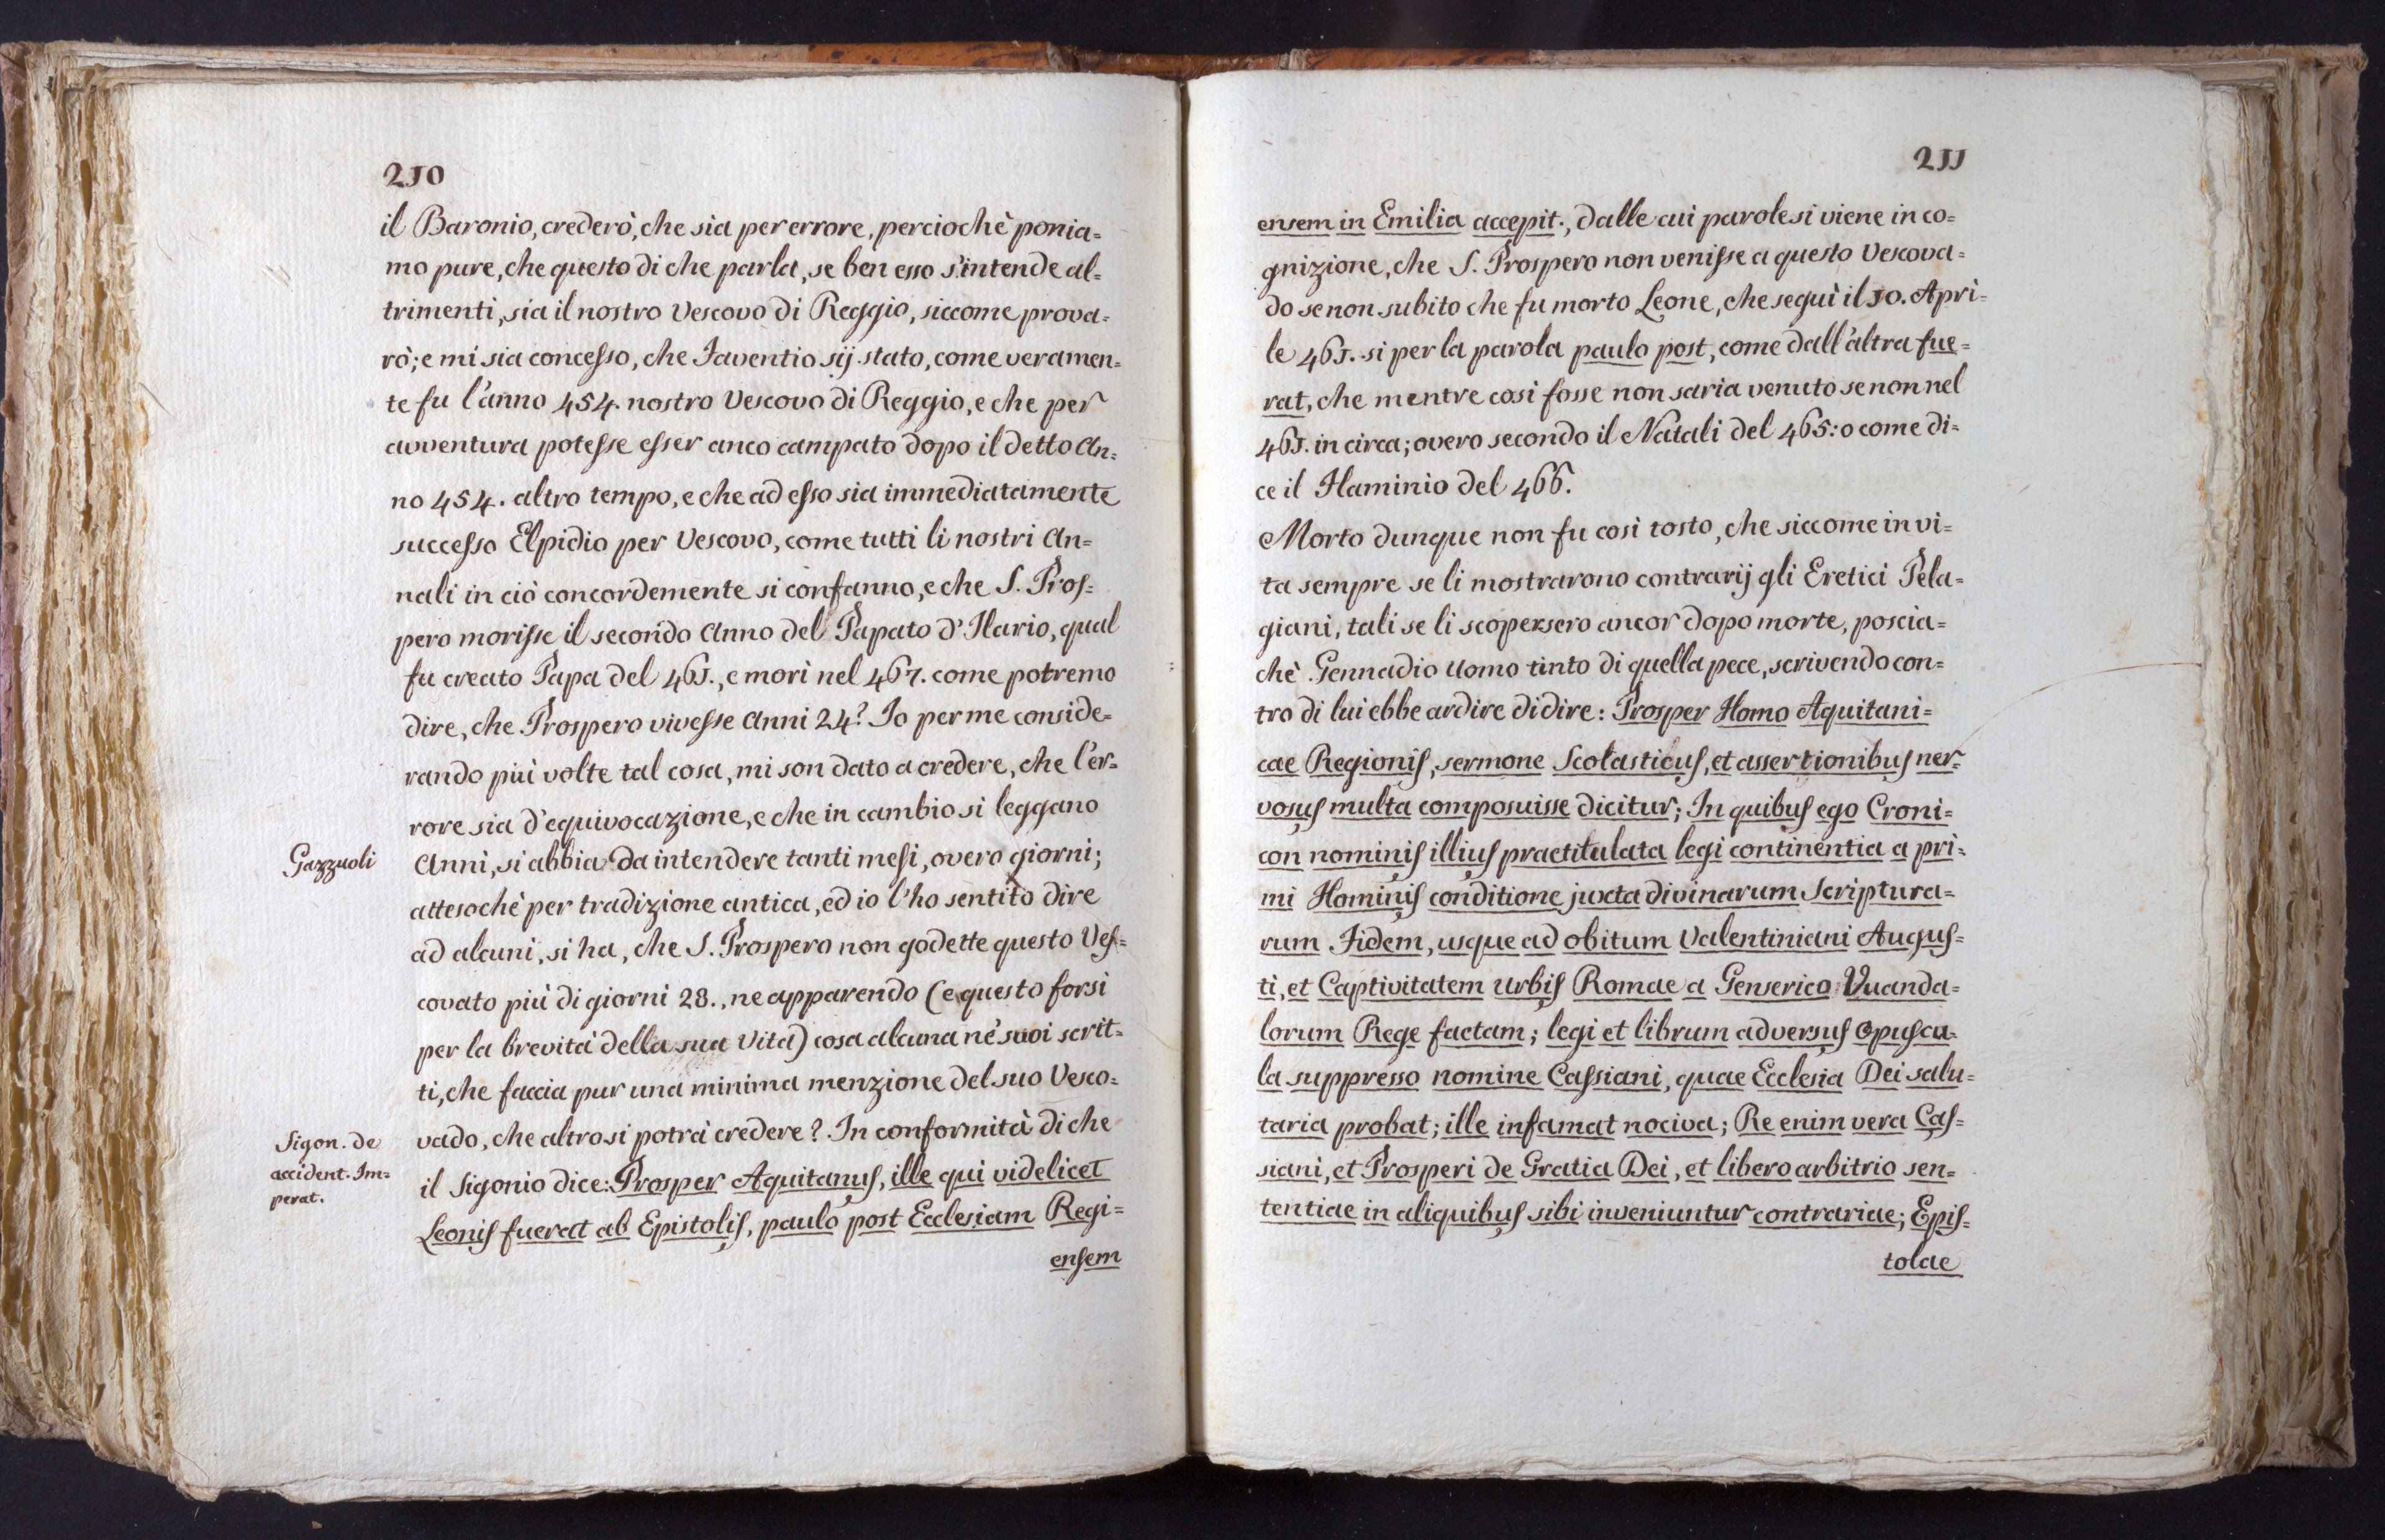 210
il Baronio, crederò, che sia per errore, perciochè ponia=
mo pure, che questo di che parla, se ben esso s'intende al=
trimenti, sia il nostro Vescovo di Reggio, siccome prova=
rò; e mi sia concesso, che Faventio sij stato, come veramen=
te fu l'anno 454. nostro Vescovo di Reggio, e che per
avventura potesse esser anco campato dopo il detto An=
no 454. altro tempo, e che ad esso sia immediatamente
successo Elpidio per Vescovo, come tutti li nostri An=
nali in ciò concordemente si confanno, e che S. Pros=
pero morisse il secondo Anno del Papato d'Ilario, qual
fu creato Papa del 461., e morì nel 467. come potremo
dire, che Prospero vivesse Anni 24? Io per me conside=
rando più volte tal cosa, mi son dato a credere, che l'er=
rore sia d'equivocazione, e che in cambio si leggano
Gazzuoli
Anni, si abbia da intendere tanti mesi, overo giorni;
attesochè per tradizione antica, ed io l'ho sentito dire
ad alcuni, si ha, che S. Prospero non godette questo Ves=
covato più di giorni 28., ne apparendo (e questo forsi
per la brevità della sua Vita) cosa alcuna né suoi scrit=
ti, che faccia pur una minima menzione del suo Vesco=
vado, che altro si potrà credere? In conformità di che
Sigon. de
accident. Im=
perat.
il Sigonio dice: Prosper Aquitanus, ille qui videlicet
Leonis fuerat ab Epistolis, paulo post Ecclesiam Regi=
ensem
211
ensem in Emilia accepit., dalle cui parole si viene in co=
gnizione, che S. Prospero non venisse a questo Vescova=
do se non subito che fu morto Leone, che seguì il 10. Apri=
le 461. si per la parola paulo post, come dall'altra fue=
rat, che mentre così fosse non saria venuto se non nel
461. in circa; overo secondo il Natali del 465: o come di=
ce il Flaminio del 466.
Morto dunque non fu così tosto, che siccome in vi=
ta sempre se li mostrarono contrarij gli Eretici Pela=
giani, tali se li scopersero ancor dopo morte, poscia=
chè Gennadio Uomo tinto di quella pece, scrivendo con=
tro di lui ebbe ardire di dire: Prosper Homo Aquitani=
cae Regionis, sermone Scolasticus, et assertionibus ner=
vosus multa composuisse dicitur; In quibus ego Croni=
con nominis illius praetitulata legi continentia a pri=
mi Hominis conditione juxta divinarum Scriptura=
rum Fidem, usque ad obitum Valentiniani Augus=
ti, et Captivitatem Urbis Romae a Genserico Vuanda=
lorum Rege factam; legi et librum adversus Opuscu=
la suppresso nomine Cassiani, quae Ecclesia Dei salu=
taria probat; ille infamat nociva; Re enim vera Cas=
siani, et Prosperi de Gratia Dei, et libero arbitrio sen=
tentiae in aliquibus sibi inveniuntur contrariae; Epis=
tolae